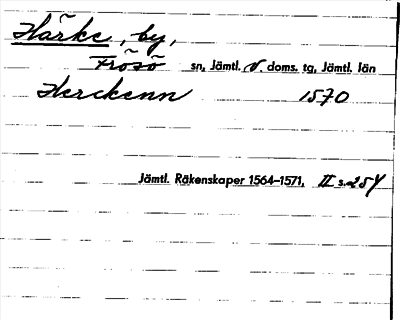 Härke, by,
Frösö sn, Jämtl. V. doms. tg, Jämtl. län
Herckenn 1570
Jämtl. Räkenskaper 1564-1571, II s. 254